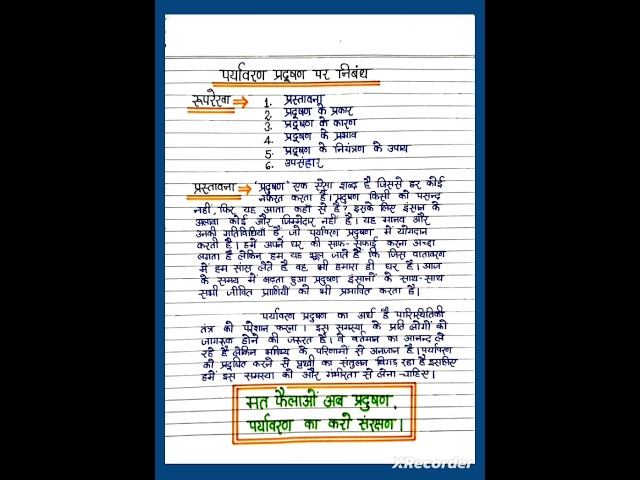 पर्यावरण प्रदूषण पर निबंध
रूपरेखा ⇒ 1. प्रस्तावना
2. प्रदूषण के प्रकार
3. प्रदूषण के कारण
4. प्रदूषण के प्रभाव
5. प्रदूषण के नियंत्रण के उपाय
6. उपसंहार
प्रस्तावना ⇒ 'प्रदूषण' एक ऐसा शब्द है जिससे हर कोई
नफरत करता है। प्रदूषण किसी को पसन्द
नहीं, फिर यह आता कहाँ से है? इसके लिए इंसान के
अलावा कोई और जिम्मेदार नहीं है। यह मानव और
उनकी गतिविधियाँ हैं, जो पर्यावरण प्रदूषण में योगदान
करती हैं। हमें अपने घर की साफ-सफाई करना अच्छा
लगता है लेकिन हम यह भूल जाते हैं कि जिस वातावरण
में हम सांस लेते है वह भी हमारा ही घर है। आज
के समय में बढ़ता हुआ प्रदूषण इंसानों के साथ-साथ
सभी जीवित प्राणियों को भी प्रभावित करता है।
पर्यावरण प्रदूषण का अर्थ है पारिस्थितिकी
तंत्र को परेशान करना। इस समस्या के प्रति लोगों को
जागरूक होने की जरूरत है। वे वर्तमान का आनन्द ले
रहे हैं लेकिन भविष्य के परिणामों से अनजान है। पर्यावरण
को प्रदूषित करने से पृथ्वी का संतुलन बिगड़ रहा है इसलिए
हमें इस समस्या को और गंभीरता से लेना चाहिए।
मत फैलाओं अब प्रदुषण,
पर्यावरण का करो संरक्षण।
XRecorder